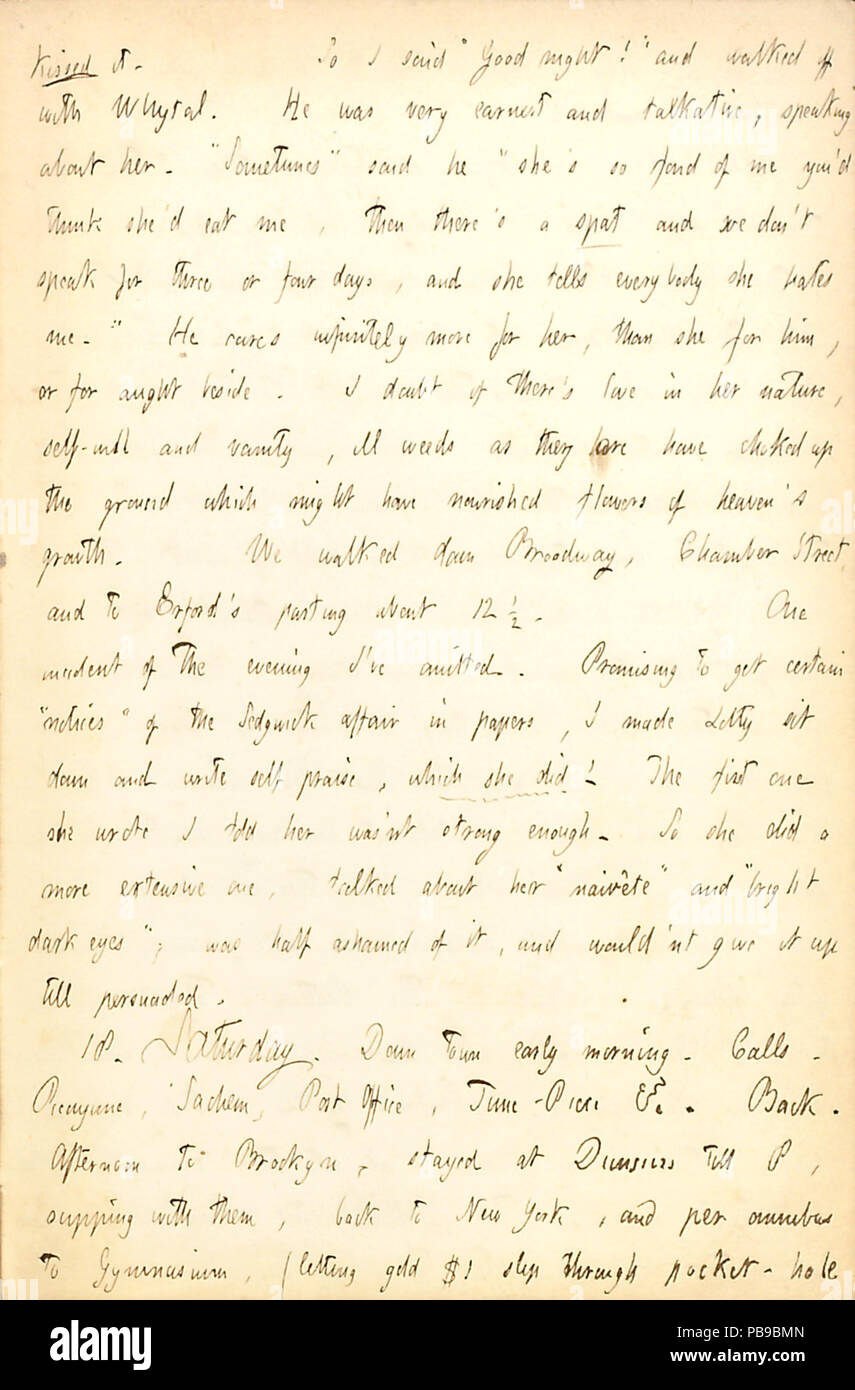 kissed it. So I said "Good night!" and walked off
with Whytal. He was very earnest and talkative, speaking
about her. "Sometimes" said he "she's so fond of me you'd
think she'd eat me, then there's a spat and we don't
speak for three or four days, and she tells everybody she hates
me." He cares infinitely more for her, than she for him,
or for aught beside. I doubt if there's love in her nature,
self-will and vanity, ill weeds as they are have choked up
the ground which might have nourished flowers of heaven's
growth. We walked down Broadway, Chamber Street,
and to Erford's parting about 12 ½. One
incident of the evening I've omitted. Promising to get certain
"notices" of the Sedgwick affair in papers, I made Letty sit
down and write self praise, which she did! The first one
she wrote I told her was'nt strong enough. So she did a
more extensive one, talked about her "naivête" and "bright
dark eyes"; was half ashamed of it, and would'nt give it up
till persuaded.
18. Saturday. Down town early morning. Calls.
Picayune, Sachem, Post Office, Time-Piece &c. Back.
Afternoon to Brookyn, stayed at Dunsiers till 8,
supping with them, back to New York, and per omnibus
to Gymnasium, (letting gold $1 slip through pocket-hole
alamy
Image ID: PB9BMN
www.alamy.com